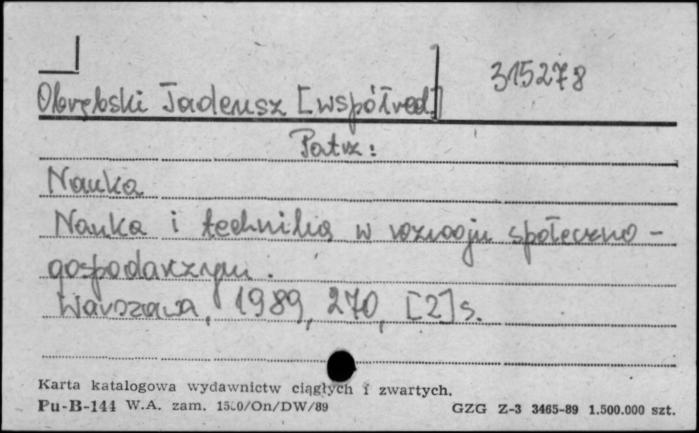 315278
Obrębski Tadeusz [współred.]
Patrz:
Nauka
Nauka i technika w rozwoju społeczno-
gospodarczym.
Warszawa, 1989, 270, [2] s.
Karta katalogowa wydawnictw ciągłych i zwartych.
Pu-B-144 W.A. zam. /On/DW/89 GZG Z-3 3465-89 1.500.000 szt.